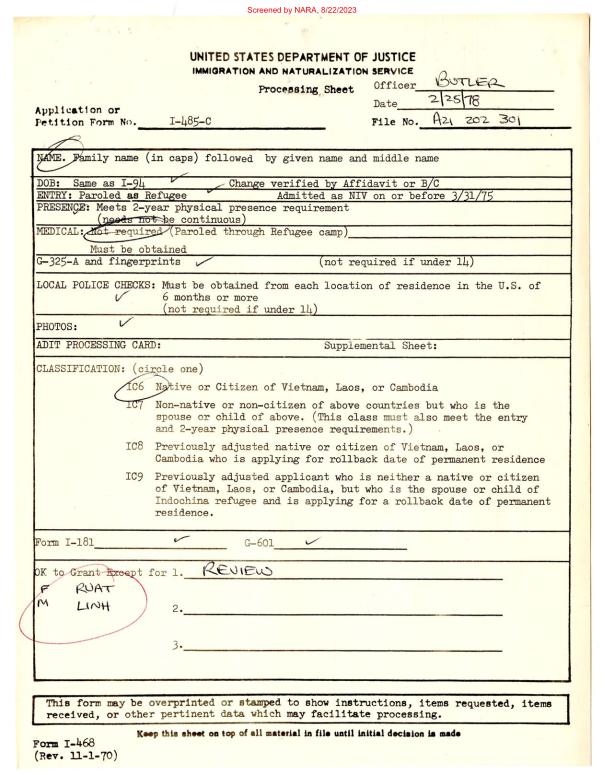 Screened by NARA, 8/22/2023
UNITED STATES DEPARTMENT OF JUSTICE
IMMIGRATION AND NATURALIZATION SERVICE
Processing Sheet
Officer BUTLER
Date 2/25/78
Application or
Petition Form No. I-485-C
File No. A21 202 301
NAME. Family name (in caps) followed by given name and middle name
DOB: Same as I-94 ✓ Change verified by Affidavit or B/C
ENTRY: Paroled as Refugee ✓ Admitted as NIV on or before 3/31/75
PRESENCE: Meets 2-year physical presence requirement
(needs not be continuous)
MEDICAL: Not required (Paroled through Refugee camp)
Must be obtained
G-325-A and fingerprints ✓ (not required if under 14)
LOCAL POLICE CHECKS: Must be obtained from each location of residence in the U.S. of
✓ 6 months or more
(not required if under 14)
PHOTOS: ✓
ADIT PROCESSING CARD: Supplemental Sheet:
CLASSIFICATION: (circle one)
IC6 Native or Citizen of Vietnam, Laos, or Cambodia
IC7 Non-native or non-citizen of above countries but who is the
spouse or child of above. (This class must also meet the entry
and 2-year physical presence requirements.)
IC8 Previously adjusted native or citizen of Vietnam, Laos, or
Cambodia who is applying for rollback date of permanent residence
IC9 Previously adjusted applicant who is neither a native or citizen
of Vietnam, Laos, or Cambodia, but who is the spouse or child of
Indochina refugee and is applying for a rollback date of permanent
residence.
Form I-181 ✓ G-601 ✓
OK to Grant Except for 1. REVIEW
F RUAT
M LINH
2.
3.
This form may be overprinted or stamped to show instructions, items requested, items
received, or other pertinent data which may facilitate processing.
Keep this sheet on top of all material in file until initial decision is made
Form I-468
(Rev. 11-1-70)